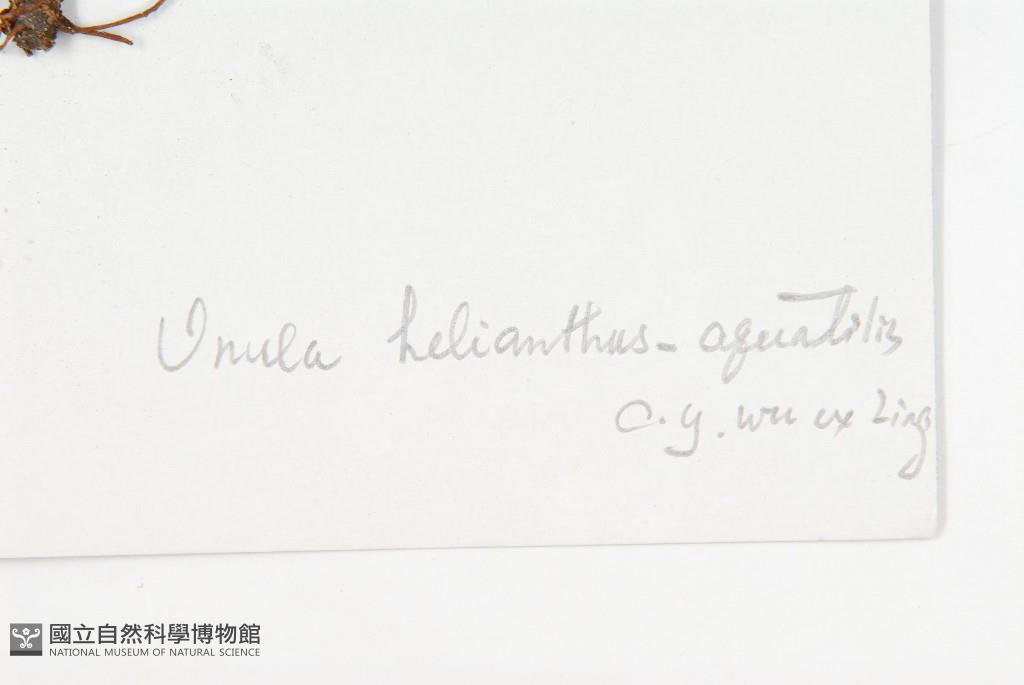 Inula helianthus-aquatilis
C. Y. Wu ex Ling
國立自然科學博物館
NATIONAL MUSEUM OF NATURAL SCIENCE